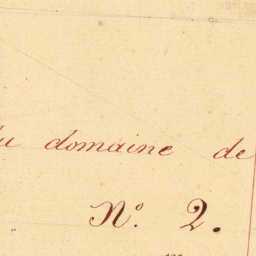 du domaine de
N.º 2.